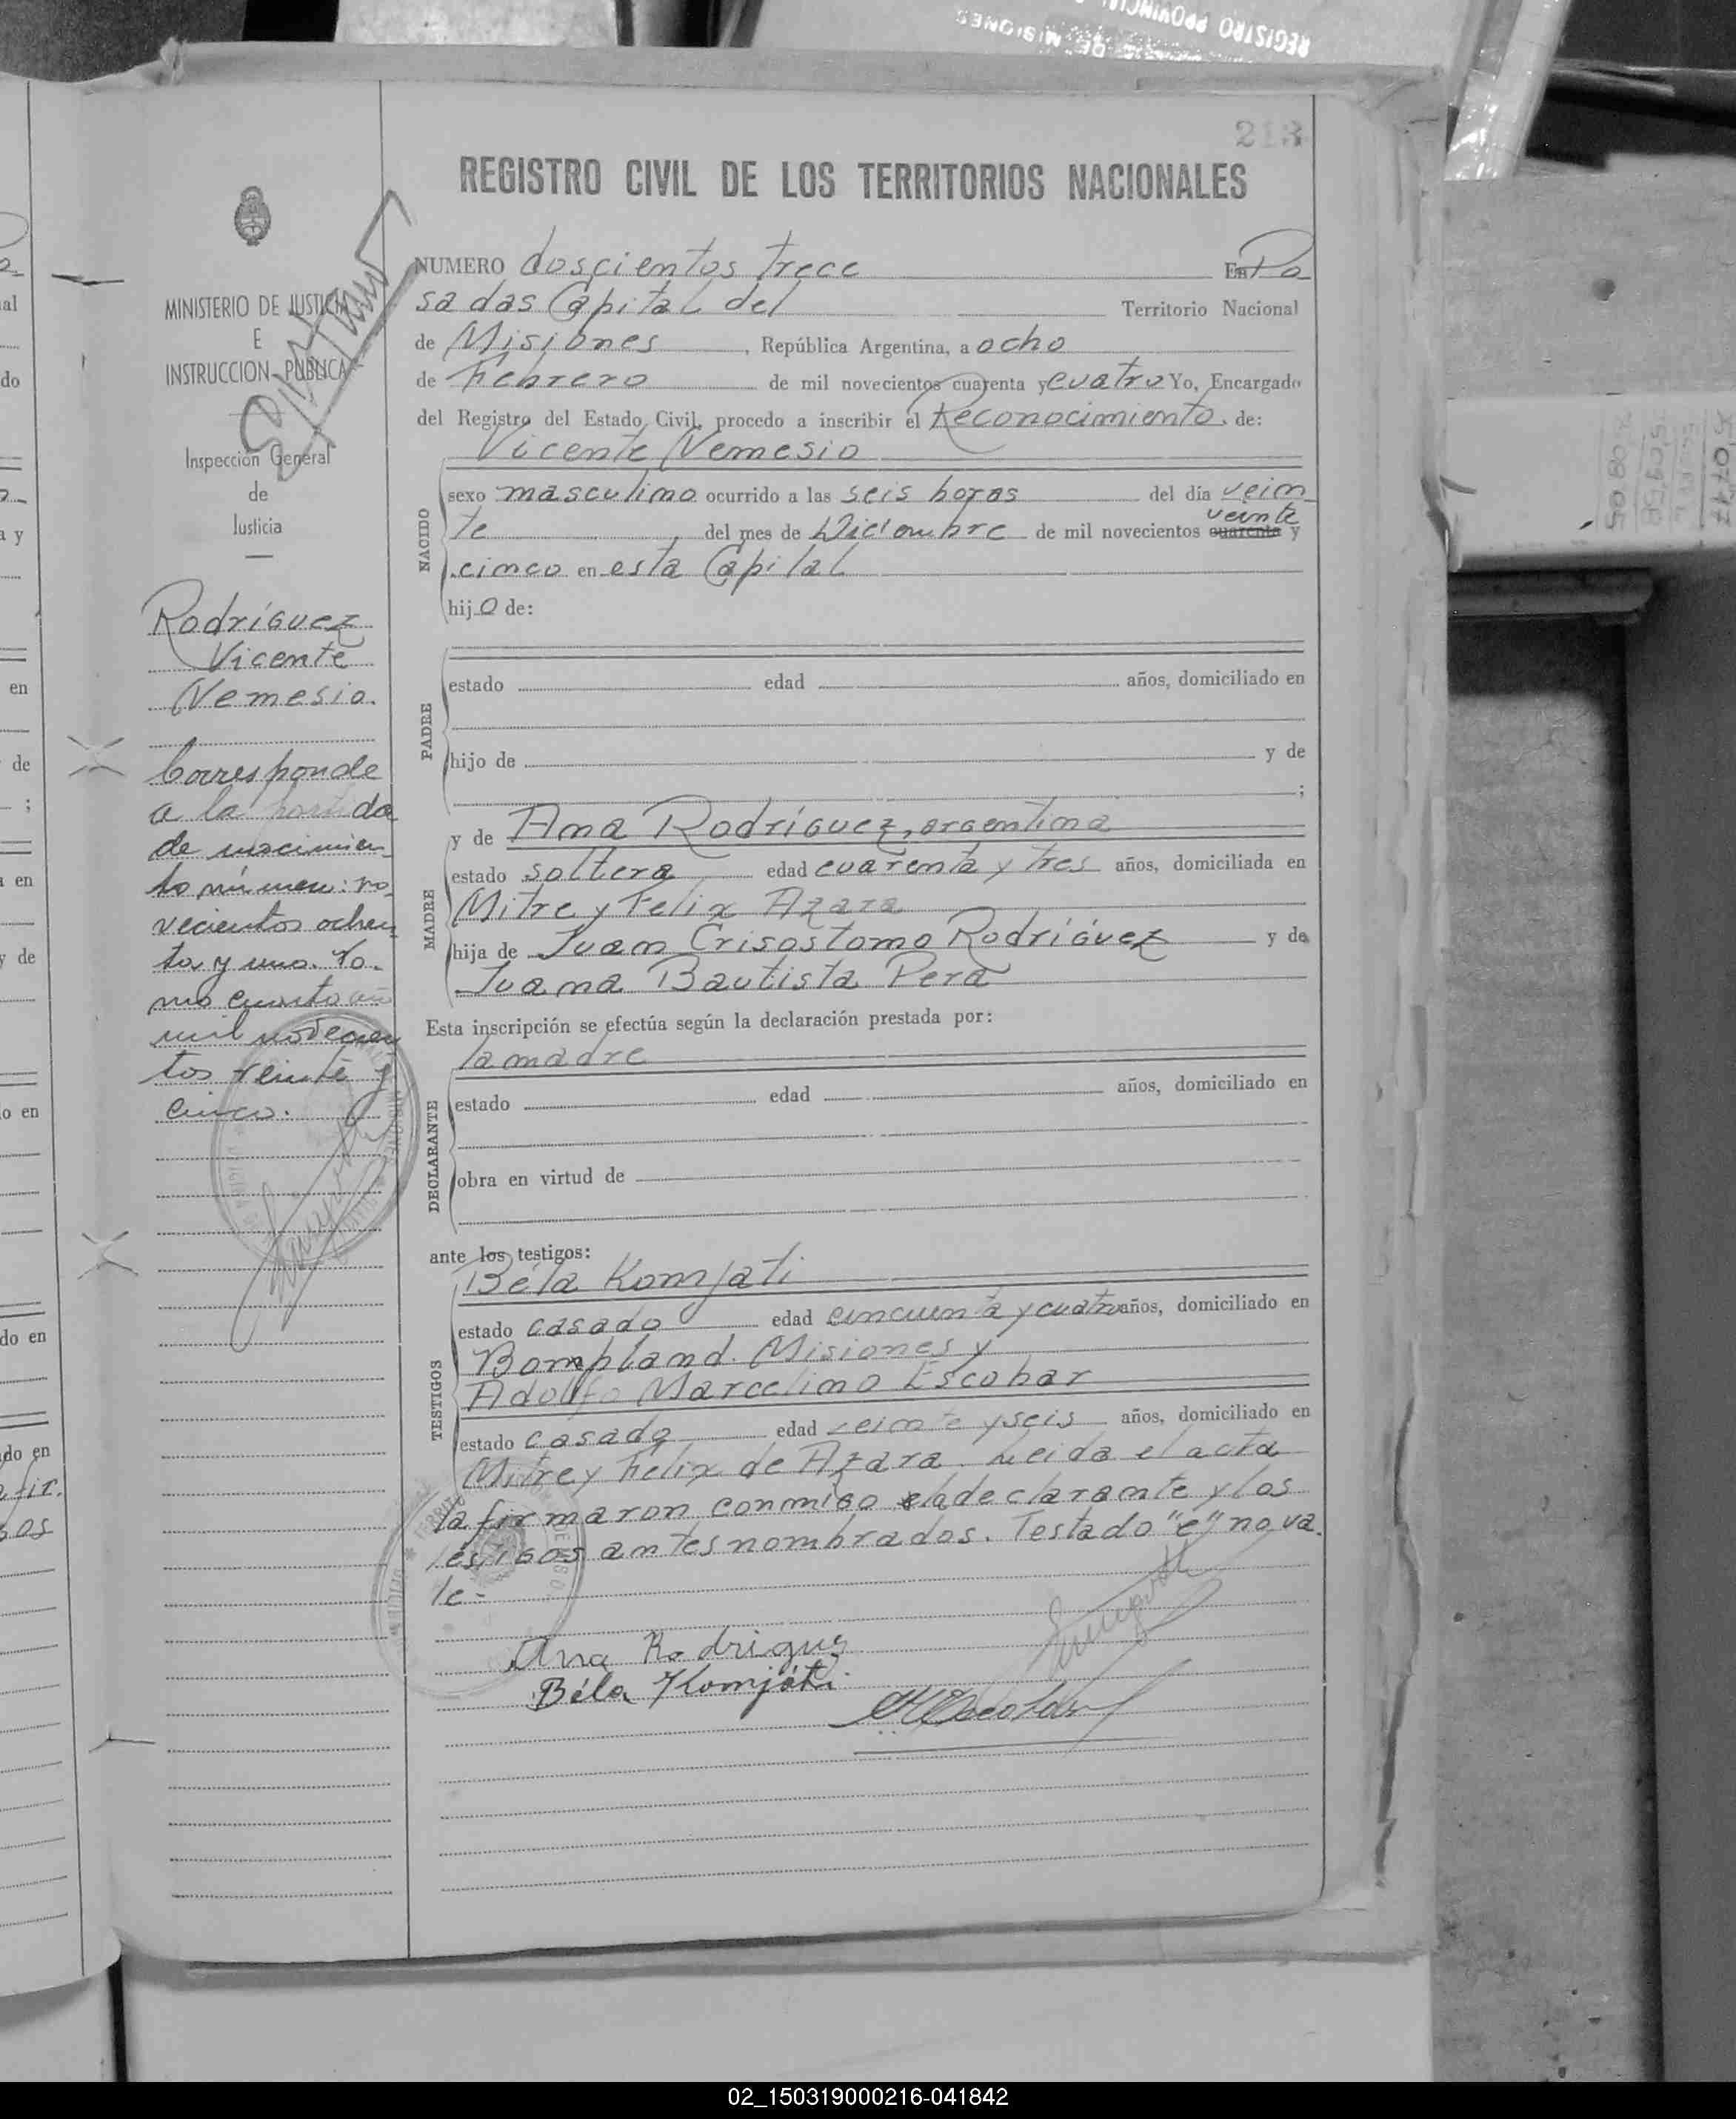 REGISTRO PROVINCIAL
DE MISIONES
213
REGISTRO CIVIL DE LOS TERRITORIOS NACIONALES
MINISTERIO DE JUSTICIA
E
INSTRUCCION PUBLICA
Inspección General
de
Justicia
Rodríguez
Vicente
Nemesio.
Corresponde
a la partida
de nacimien
to número: no
vecientos ochen
ta y uno. To
mo cuarto año
mil novecien
tos veinte y
cinco.
NUMERO doscientos trece En Po
sadas Capital del Territorio Nacional
de Misiones, República Argentina, a ocho
de Febrero de mil novecientos cuarenta y cuatro Yo, Encargado
del Registro del Estado Civil, procedo a inscribir el Reconocimiento de:
Vicente Nemesio
NACIDO
sexo masculino ocurrido a las seis horas del día vein
veinte
te del mes de Diciembre de mil novecientos cuarenta y
cinco en esta Capital
hijo de:
PADRE
estado edad años, domiciliado en
hijo de y de
;
MADRE
y de Ana Rodríguez, argentina
estado soltera edad cuarenta y tres años, domiciliada en
Mitre y Felix Azara
hija de Juan Crisostomo Rodríguez y de
Juana Bautista Pera
Esta inscripción se efectúa según la declaración prestada por:
la madre
DECLARANTE
estado edad años, domiciliado en
obra en virtud de
ante los testigos:
TESTIGOS
Béla Komjati
estado casado edad cincuenta y cuatro años, domiciliado en
Bompland. Misiones y
Adolfo Marcelino Escobar
estado casado edad veinte y seis años, domiciliado en
Mitre y Felix de Azara. Leida el acta
la firmaron conmigo e la declarante y los
testigos antes nombrados. Testado "e" no va
le-
Ana Rodrigues
Béla Komjáti
02_150319000216-041842